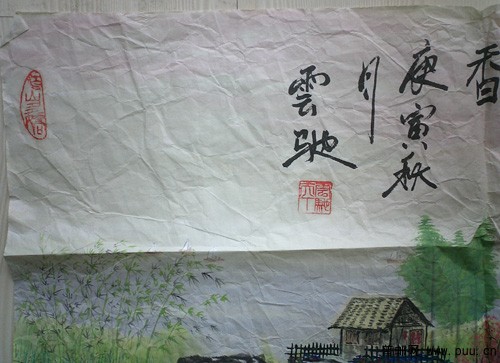 香
庚寅秋
月
雲驰
雲馳
www.puu.cn